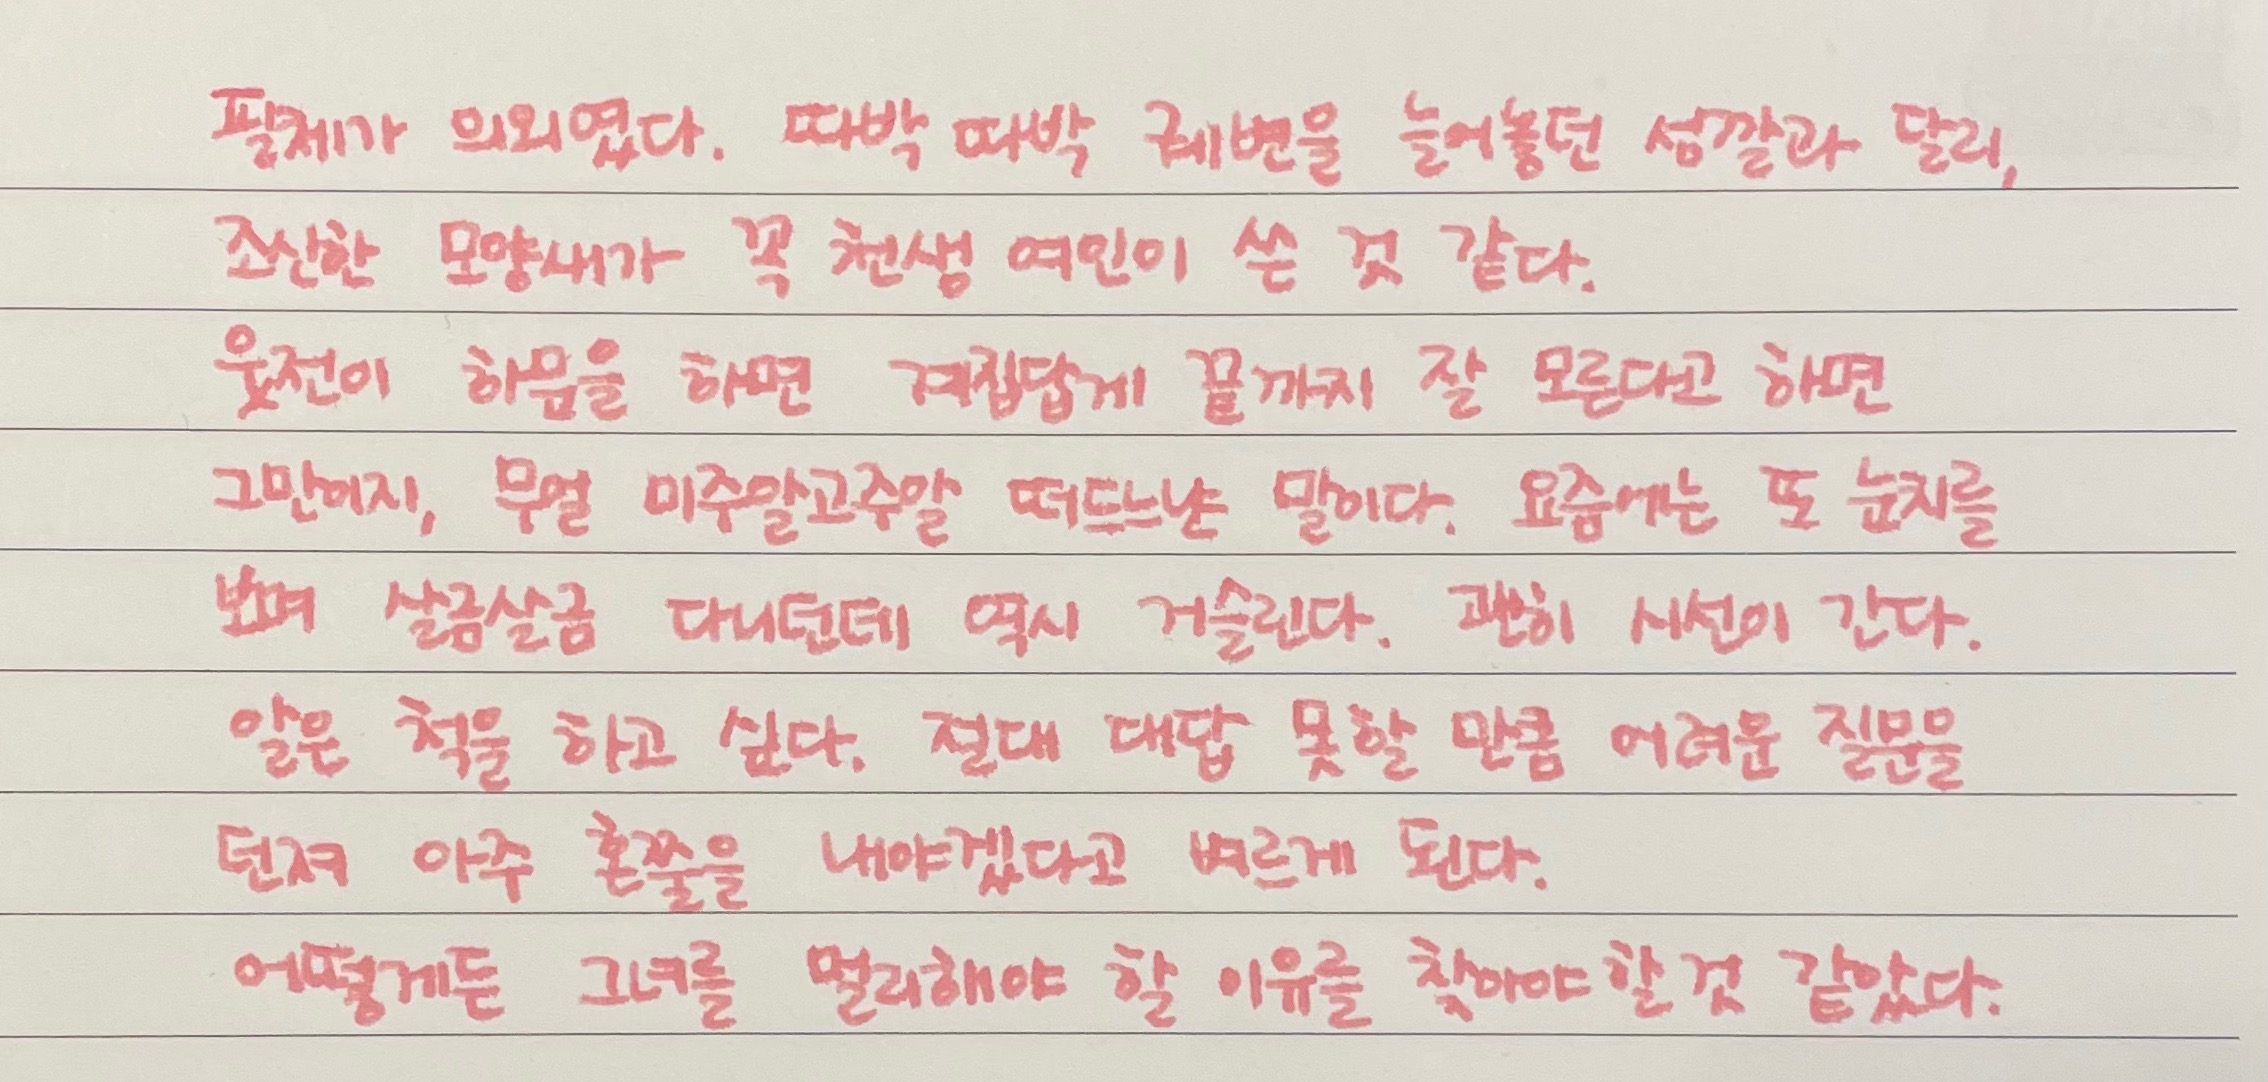 필체가 의외였다. 따박 따박 궤변을 늘어놓던 성깔과 달리,
조신한 모양새가 꼭 천생 여인이 쓴 것 같다.
웃전이 하문을 하면 계집답게 끝까지 잘 모른다고 하면
그만이지, 무얼 미주알고주알 떠드느냔 말이다. 요즘에는 또 눈치를
보며 살금살금 다니던데 역시 거슬린다. 괜히 시선이 간다.
알은 척을 하고 싶다. 절대 대답 못할 만큼 어려운 질문을
던져 아주 혼쭐을 내야겠다고 벼르게 된다.
어떻게든 그녀를 멀리해야 할 이유를 찾아야 할 것 같았다.